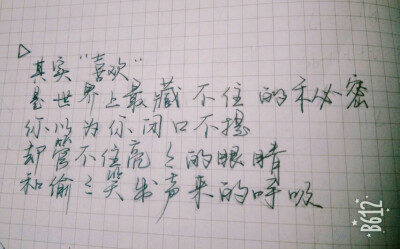 其实“喜欢”
是世界上最藏不住的秘密
你以为你闭口不提
却管不住亮々的眼睛
和偷々笑出声来的呼吸
B612